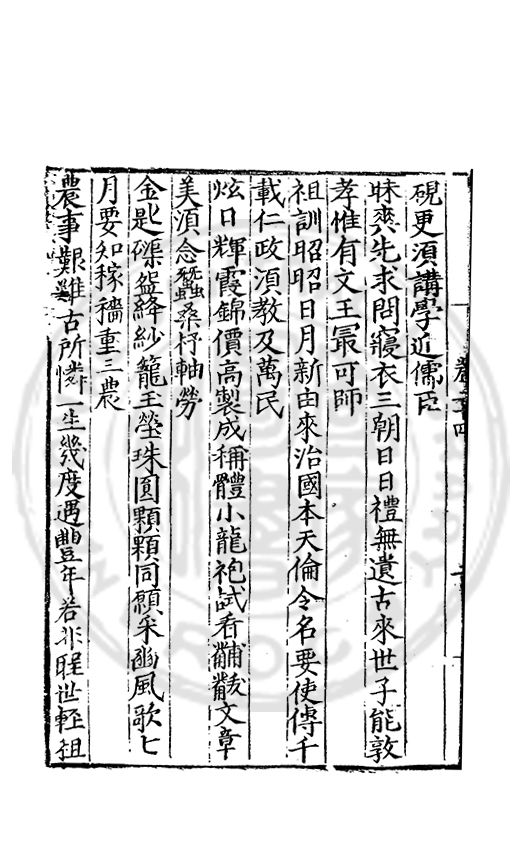 硯更須講學近儒臣
昧爽先求問寢衣三朝日日禮無遺古來世子能敦
孝惟有文王最可師
祖訓昭昭日月新由來治國本天倫令名要使傳千
載仁政須教及萬民
炫日輝霞錦價高製成稱體小龍袍試看黼黻文章
美須念蠶桑杼軸勞
金匙磔盌絳紗籠玉瑩珠圓顆顆同願采豳風歌七
月要知稼穡重三農
農事艱難古所憐一生幾度遇豐年若非聖世輕租